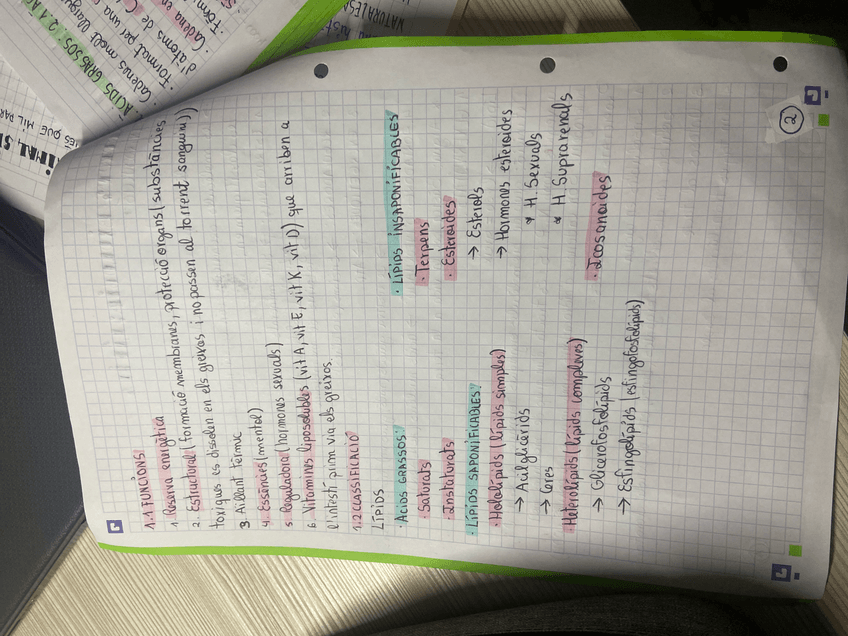 1.1 FUNCIONS:
1. Reserva energètica
2. Estructural (formació membranes, protecció organs (substàncies
tòxiques es dissolen en els greixos, i no passen al torrent sanguini))
3. Aïllant tèrmic
4. Essències (mental)
5. Reguladora (hormones sexuals)
6. Vitamines liposolubles (vit A, vit E, vit K, vit D) que arriben a
l'intestí prim via els greixos.
1.2 CLASSIFICACIÓ
LÍPIDS
· ÀCIDS GRASSOS:
· Saturats
· Insaturats
· LÍPIDS SAPONIFICABLES:
· Hololípids (lípids simples)
→ Acilglicèrids
→ Ceres
· Heterolípids (lípids complexes)
→ Glicerofosfolípids
→ Esfingolípids (esfingofosfolípids)
· LÍPIDS INSAPONIFICABLES
· Terpens
· Esteroides
→ Esterols
→ Hormones esteroides
* H. Sexuals
* H. Suprarenals
· Icosanoides
2
ÀCIDS GRASSOS: 2.1 À
· Cadenes molt llargu
· Format per una
· Cadena en
d'àtoms de C
· Form
NATURALES
MÉS QUE MIL PAR